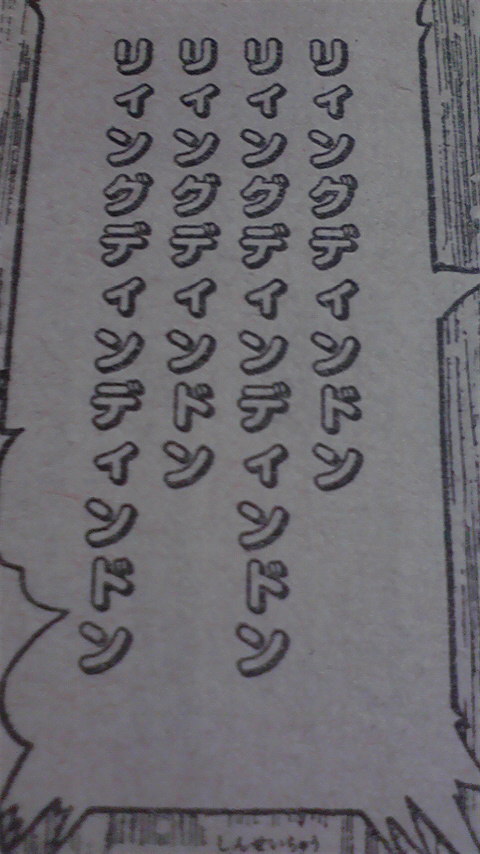 リィングディンドン
リィングディンディンドン
リィングディンドン
リィングディンディンドン
しんせいちゅう